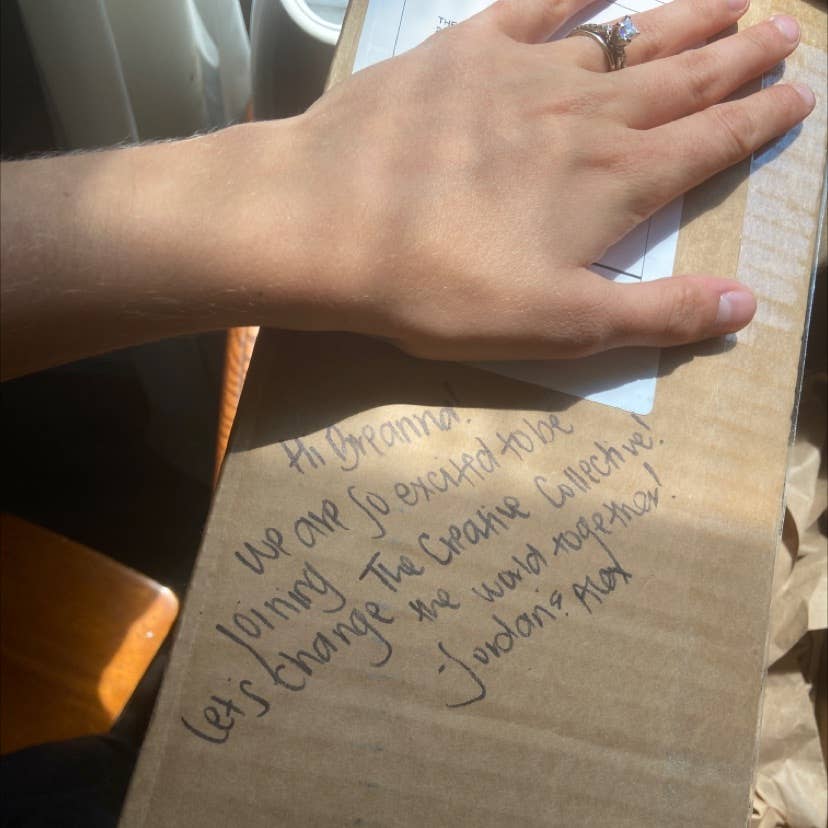 THE
Hi Breanna!
We are so excited to be
joining The Creative Collective!
Let's change the world together!
-Jordan & Alex